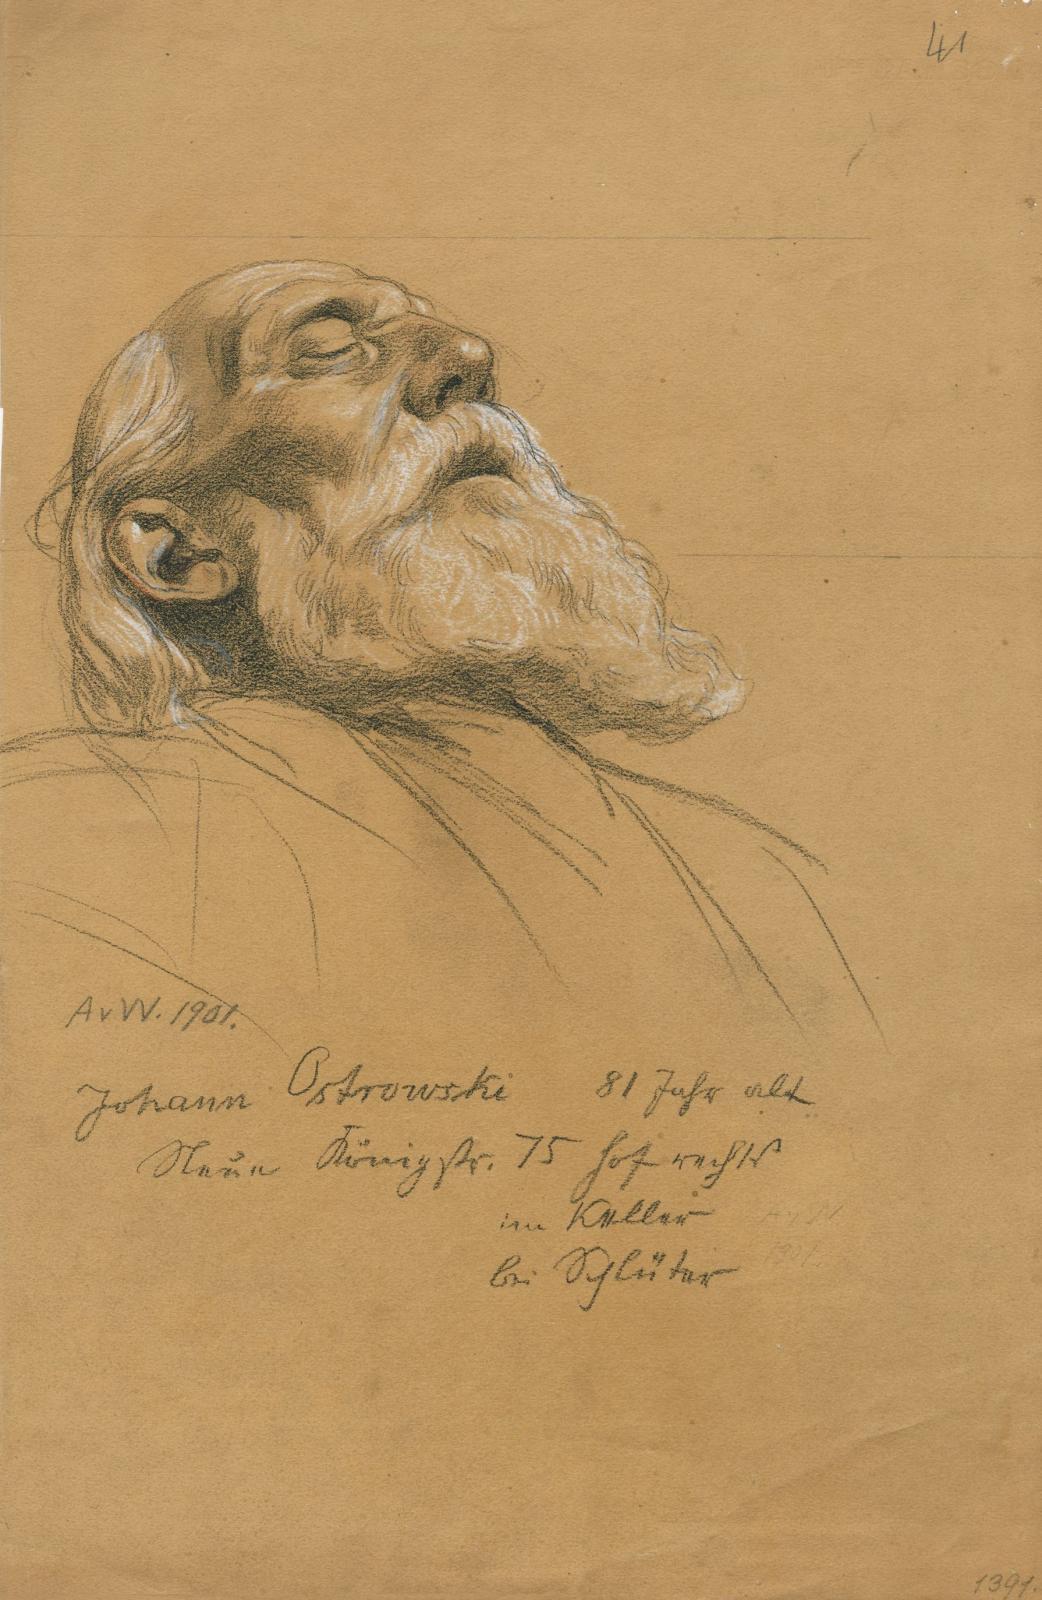 41
AvW. 1901.
Johann Ostrowski 81 Jahr alt
Neue Königstr. 75 Hof rechts
im Keller
bei Schlüter
AvW
1901.
1391.